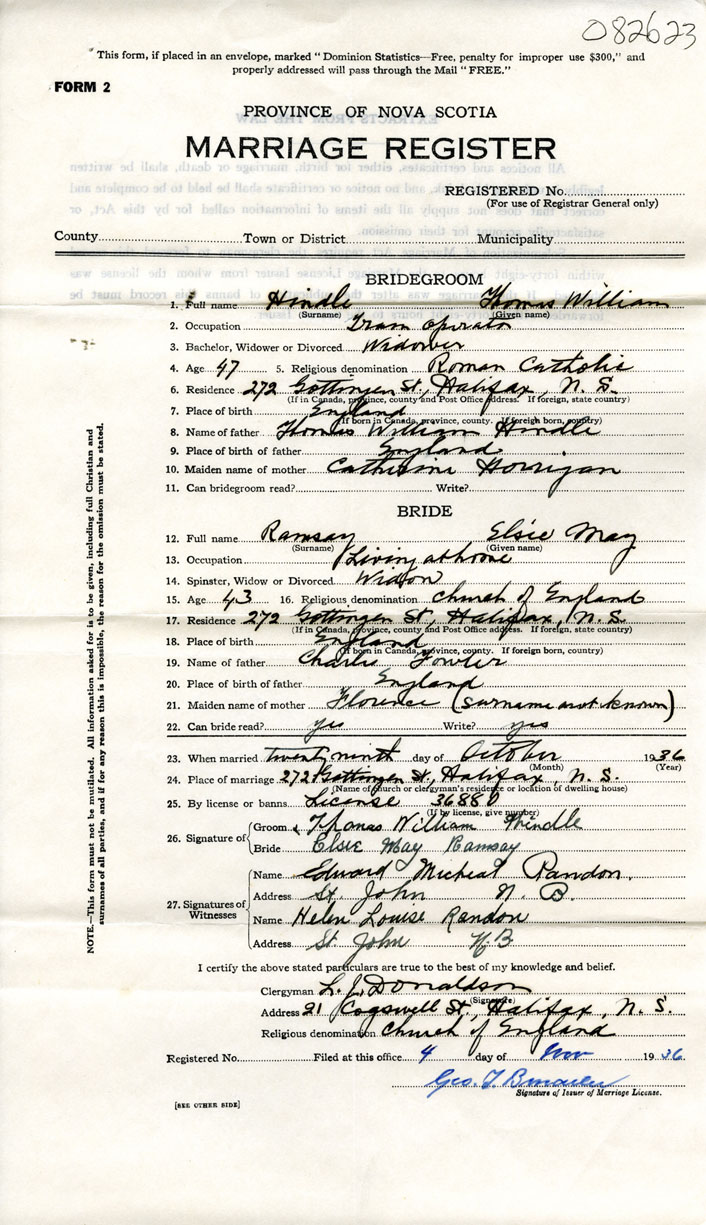 082623
"This form, if placed in an envelope, marked "Dominion Statistics—Free, penalty for improper use $300," and
properly addressed will pass through the Mail "FREE."
FORM 2
PROVINCE OF NOVA SCOTIA
MARRIAGE REGISTER
REGISTERED No.
(For use of Registrar General only)
County Town or District Municipality
BRIDEGROOM
1. Full name Hindle Thomas William
(Surname) (Given name)
2. Occupation Tram operator
3. Bachelor, Widower or Divorced Widower
4. Age 47 5. Religious denomination Roman Catholic
6. Residence 272 Gottingen St., Halifax, N. S.
(If in Canada, province, county and Post Office address. If foreign, state country)
7. Place of birth England
(If born in Canada, province, county. If foreign born, country)
8. Name of father Thomas William Hindle
9. Place of birth of father England
10. Maiden name of mother Catherine Horrigan
11. Can bridegroom read? Write?
BRIDE
12. Full name Ramsay Elsie May
(Surname) (Given name)
13. Occupation Living at home
14. Spinster, Widow or Divorced Widow
15. Age 43 16. Religious denomination Church of England
17. Residence 272 Gottingen St, Halifax, N. S.
(If in Canada, province, county and Post Office address. If foreign, state country)
18. Place of birth England
(If born in Canada, province, county. If foreign born, country)
19. Name of father Charles Fowler
20. Place of birth of father England
21. Maiden name of mother Florence (surname not known)
22. Can bride read? yes Write? yes
23. When married twenty ninth day of October 1936
(Month) (Year)
24. Place of marriage 272 Gottingen St, Halifax, N. S.
(Name of church or clergyman's residence or location of dwelling house)
25. By license or banns License 36880
(If by license, give number)
26. Signature of
Groom Thomas William Hindle
Bride Elsie May Ramsay
27. Signatures of Witnesses
Name Edward Micheal Randon.
Address St. John N. B.
Name Helen Louise Randon
Address St. John N.B
I certify the above stated particulars are true to the best of my knowledge and belief.
Clergyman L. J. Donaldson
(Signature)
Address 21 Cogswell St, Halifax, N. S.
Religious denomination Church of England
Registered No. Filed at this office 4 day of Nov 1936
Geo. T.
Signature of Issuer of Marriage License.
[SEE OTHER SIDE]
NOTE.—This form must not be mutilated. All information asked for is to be given, including full Christian and
surnames of all parties, and if for any reason this is impossible, the reason for the omission must be stated.